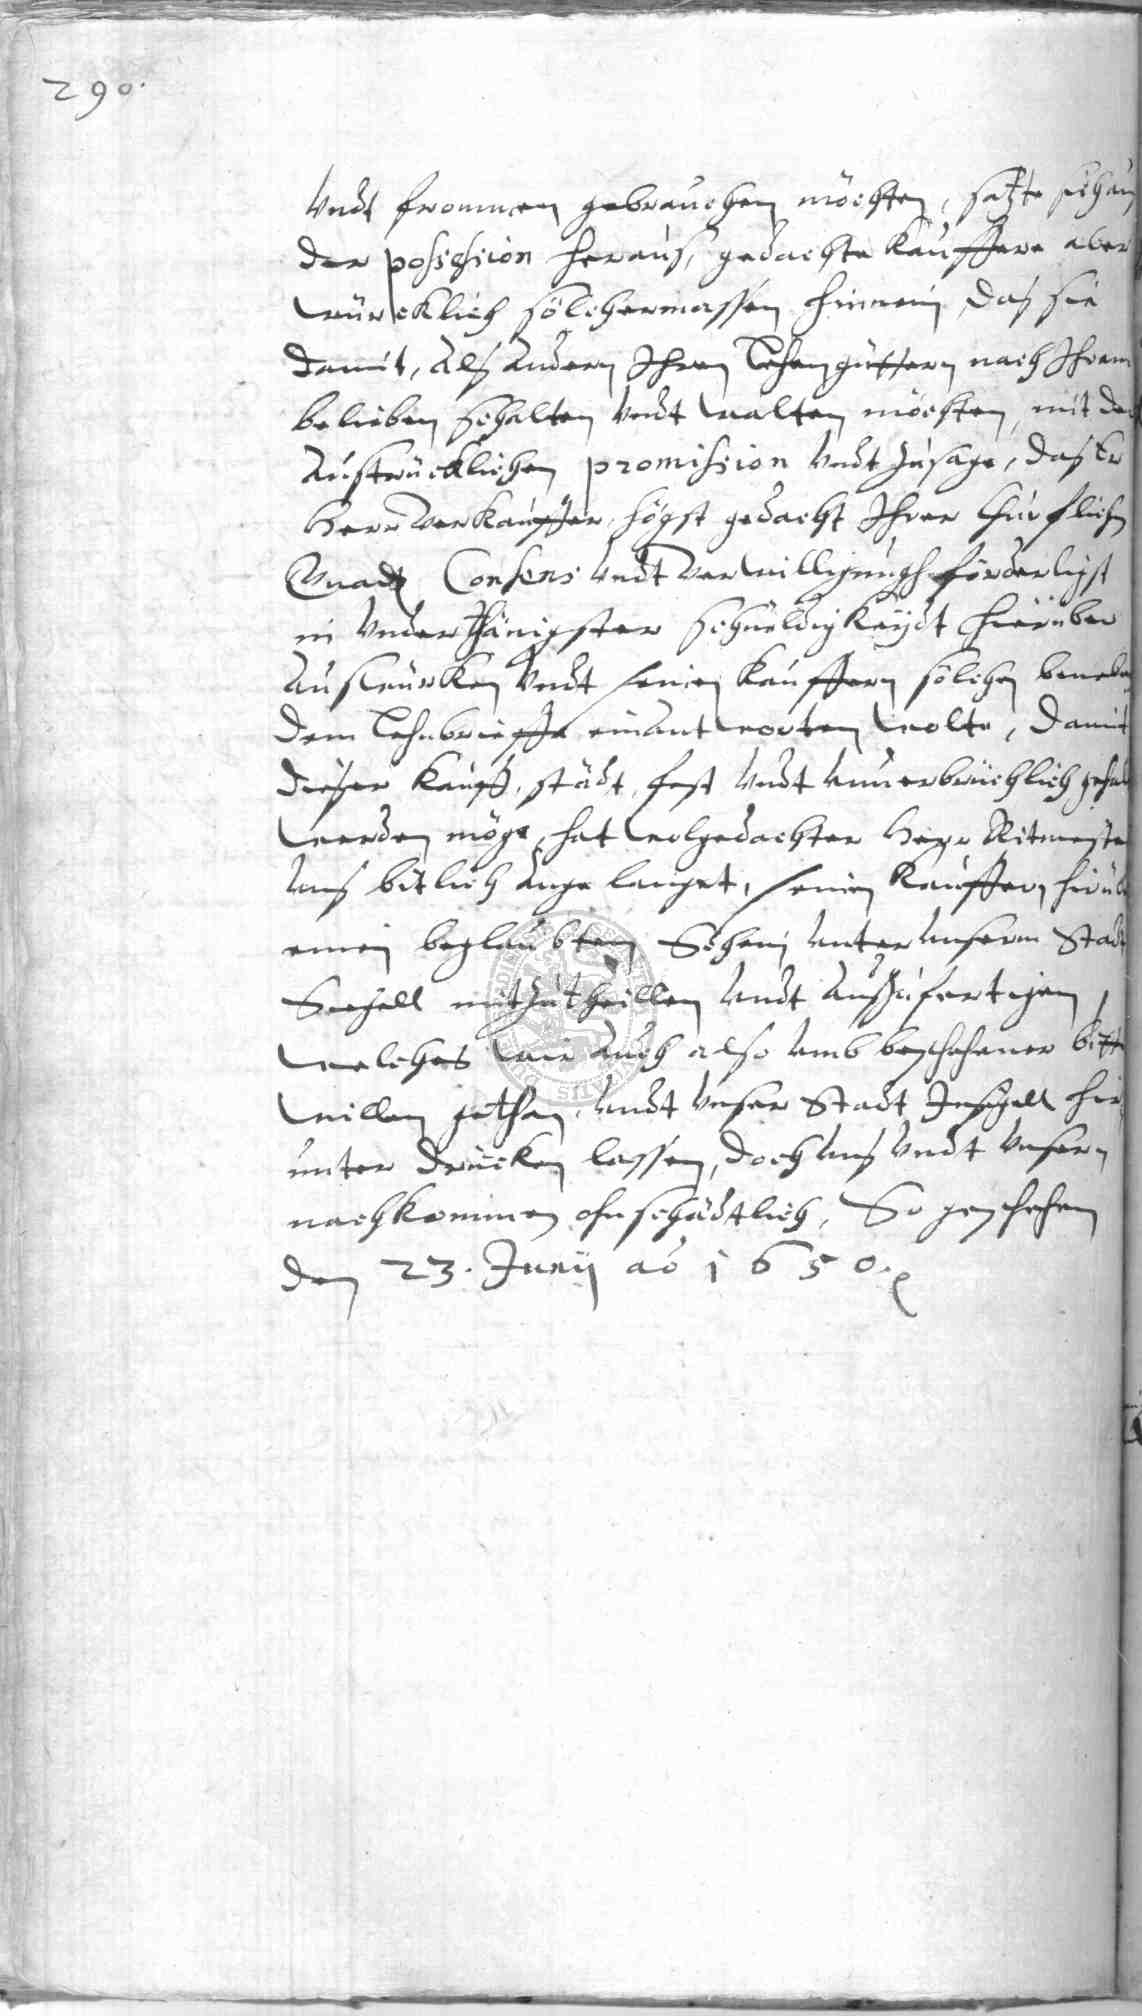 290.
Undt frommen gebrauchen möchten, satzte sich auß
der possession heraus, gedachte Kauffere aber
würcklich sölchermassen hinnein, daß sie
damit, alß andern Ihren Lehengüttern nach Ihrem
belieben schalten undt walten möchten, mit der
Austrücklichen promission undt Zusage, daß Er
Herr Verkauffer, högst gedacht Ihrer Churflichn
Gnadn Consens undt Verwilligungh förderligst
in underthänigster schüeldigkeÿdt hierüber
Außwürken undt seinen Kauffern sölchen beneben
dem Lehnbrieffe einantworten wolte, damit
dieser Kauff, städt, fest undt unuerbrüchlich gehal
werden möge, hat wolgedachter Herr Ritmeiste
uns bitlich Angelanget, seinen Kauffern hirüb
einen beglaubten Schein unter unserm Stad
Siegell mitzutheillen undt außzufertigen,
welches wir Auch also umb beschehener bitt
willen gethan, undt unser Stadt Insigell hir
unter drücken lassen, doch unß undt unsern
nachkommen ohnschädtlich, So geschehen
den 23. Junÿ ao 1650.